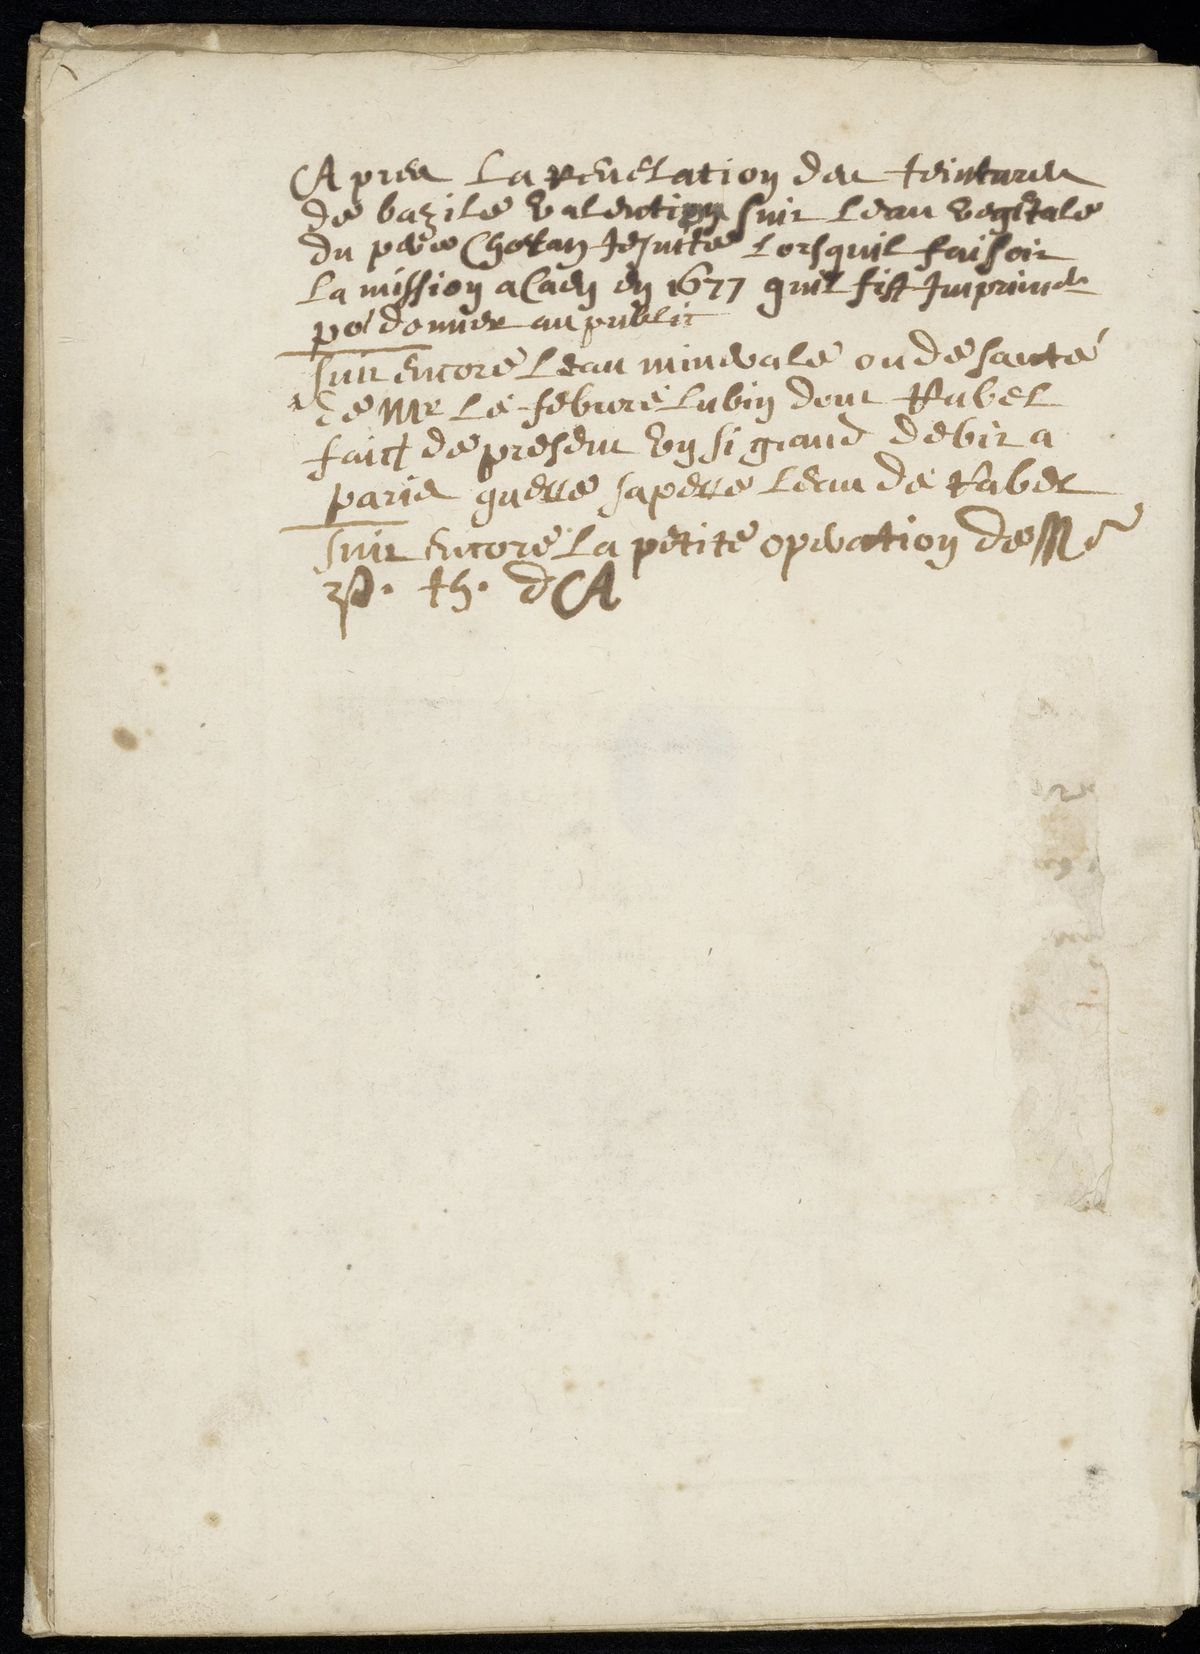 Apres La Revelation des teintures
de bazile valentin suit leau vegetale
du pere Chotan Jesuitte Lorsquil faisoit
La mission a Caen en 1677 quil fist Imprimer
po' donner au public
suit encore Leau minerale ou de santé
de Mr Le febvre lubin dont Rabel
faict de present un si grand debit a
paris quelle sapelle Leau de Rabel
suit encore La petite operation de Mr
th. dA